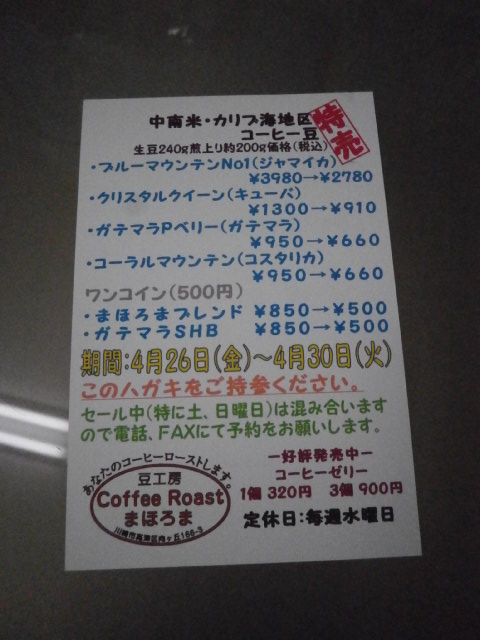 中南米・カリブ海地区
特売
コーヒー豆
生豆240g煎上り約200g価格(税込)
・ブルーマウンテンNo1(ジャマイカ)
¥3980→¥2780
・クリスタルクイーン(キューバ)
¥1300→¥910
・ガテマラPベリー(ガテマラ)
¥950→¥660
・コーラルマウンテン(コスタリカ)
¥950→¥660
ワンコイン(500円)
・まほろまブレンド ¥850→¥500
・ガテマラSHB ¥850→¥500
期間:4月26日(金)~4月30日(火)
このハガキをご持参ください。
セール中(特に土、日曜日)は混み合います
ので電話、FAXにて予約をお願いします。
あなたのコーヒーローストします。
豆工房
Coffee Roast
まほろま
川崎市高津区向ヶ丘166-3
ー好評発売中ー
コーヒーゼリー
1個 320円 3個 900円
定休日:毎週水曜日